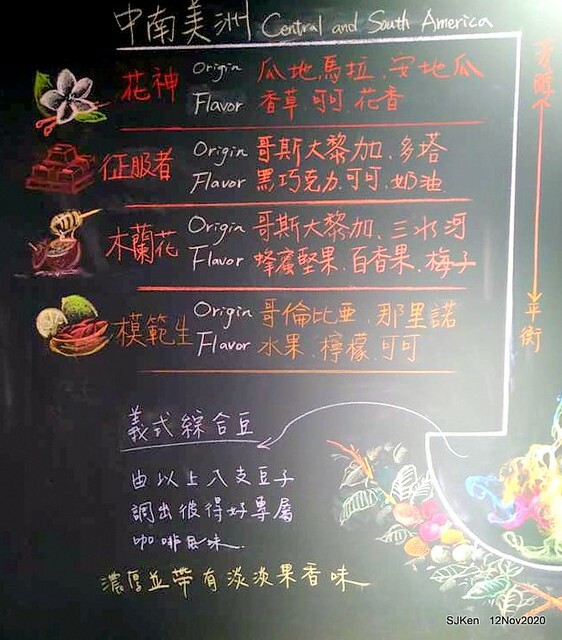 中南美洲 Central and South America
花神 Origin 瓜地馬拉、安地瓜
Flavor 香草、可可、花香
征服者 Origin 哥斯大黎加、多塔
Flavor 黑巧克力、可可、奶油
木蘭花 Origin 哥斯大黎加、三水河
Flavor 蜂蜜堅果、百香果、梅子
模範生 Origin 哥倫比亞、那里諾
Flavor 水果、檸檬、可可
芳醇
平衡
義式綜合豆
由以上八支豆子
調出彼得好專屬
咖啡風味
濃厚並帶有淡淡果香味
SJKen 12Nov2020